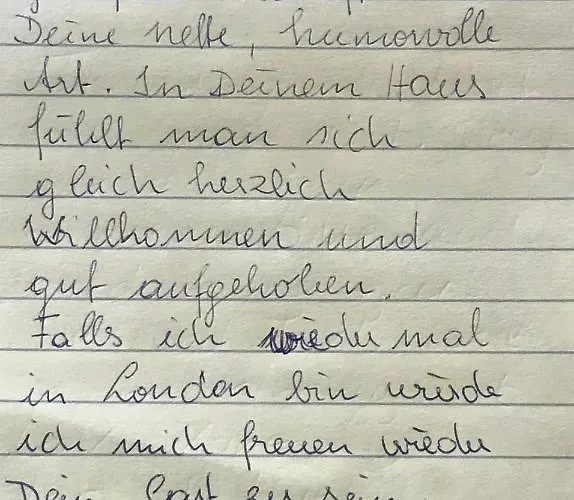 Deine nette, humorvolle
Art. In Deinem Haus
fühlt man sich
gleich herzlich
willkommen und
gut aufgehoben.
Falls ich wieder mal
in London bin würde
ich mich freuen wieder
Dein Gast zu sein.